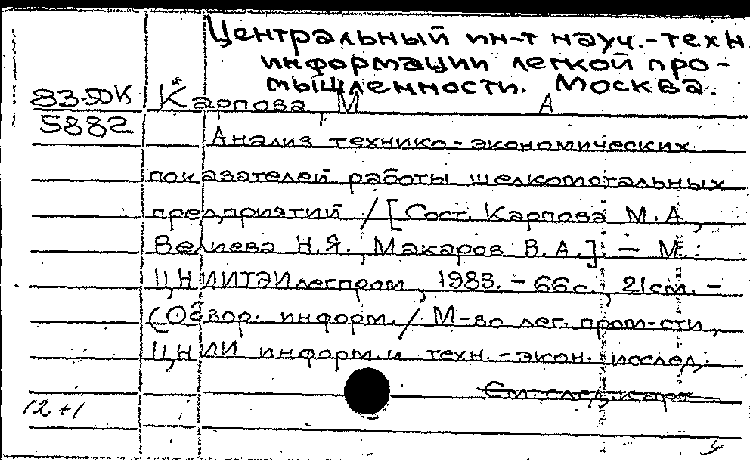 Центральный ин-т науч.-техн.
информации легкой про-
мышленности. Москва.
83-50К Карпова М А
5882
Анализ технико-экономических
показателей работы шелкомотальных
предприятий / [Сост. Карпова М.А.,
Велиева Н.Я., Макаров В.А.]. — М.:
ЦНИИТЭИлегпром, 1983. - 66 с.; 21 см. -
(Обзор. информ. / М-во лег. пром-сти,
ЦНИИ информ. и техн.-экон. исслед.
См. след. карт.
12+1